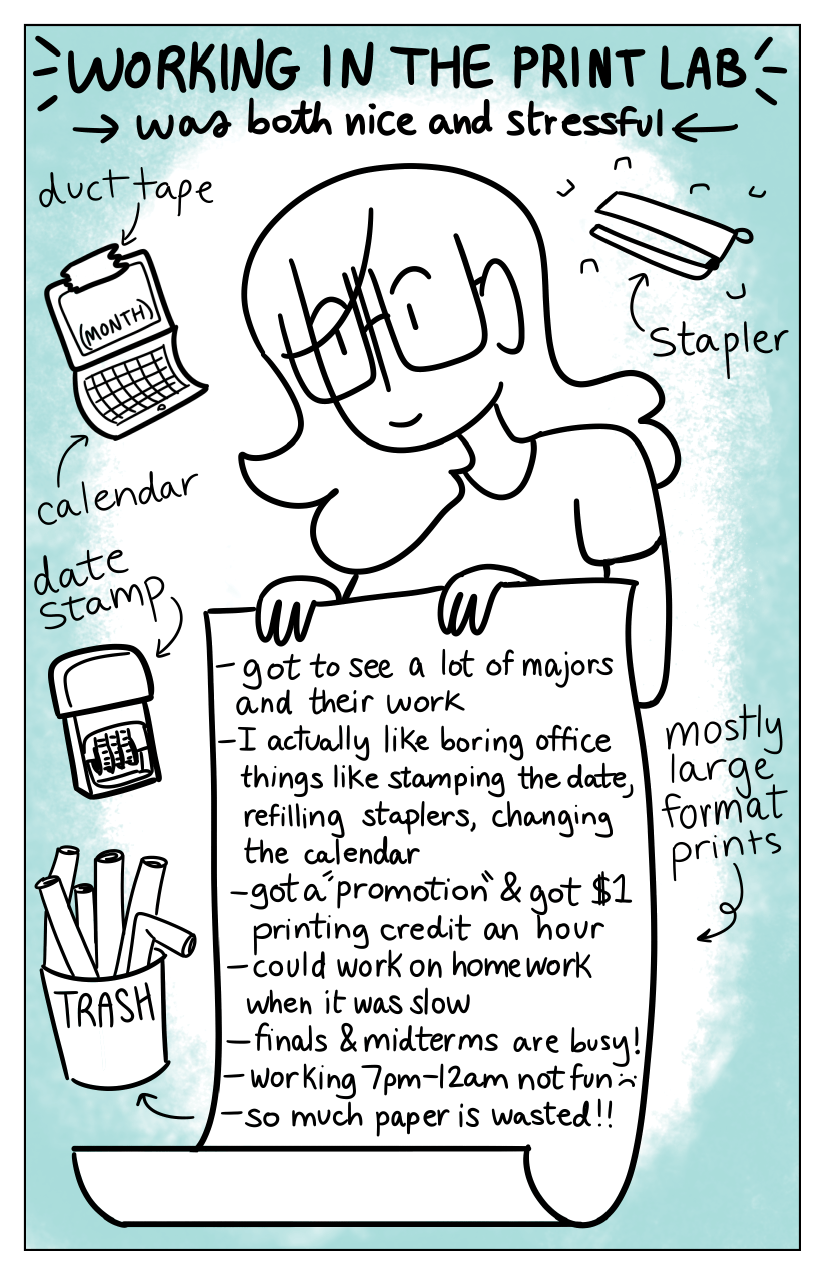 WORKING IN THE PRINT LAB
was both nice and stressful
duct tape
(MONTH)
calendar
Stapler
date
stamp
- got to see a lot of majors
and their work
- I actually like boring office
things like stamping the date,
refilling staplers, changing
the calendar
- got a "promotion" & got $1
printing credit an hour
- could work on homework
when it was slow
- finals & midterms are busy!
- working 7pm-12am not fun :(
- so much paper is wasted!!
mostly
large
format
prints
TRASH